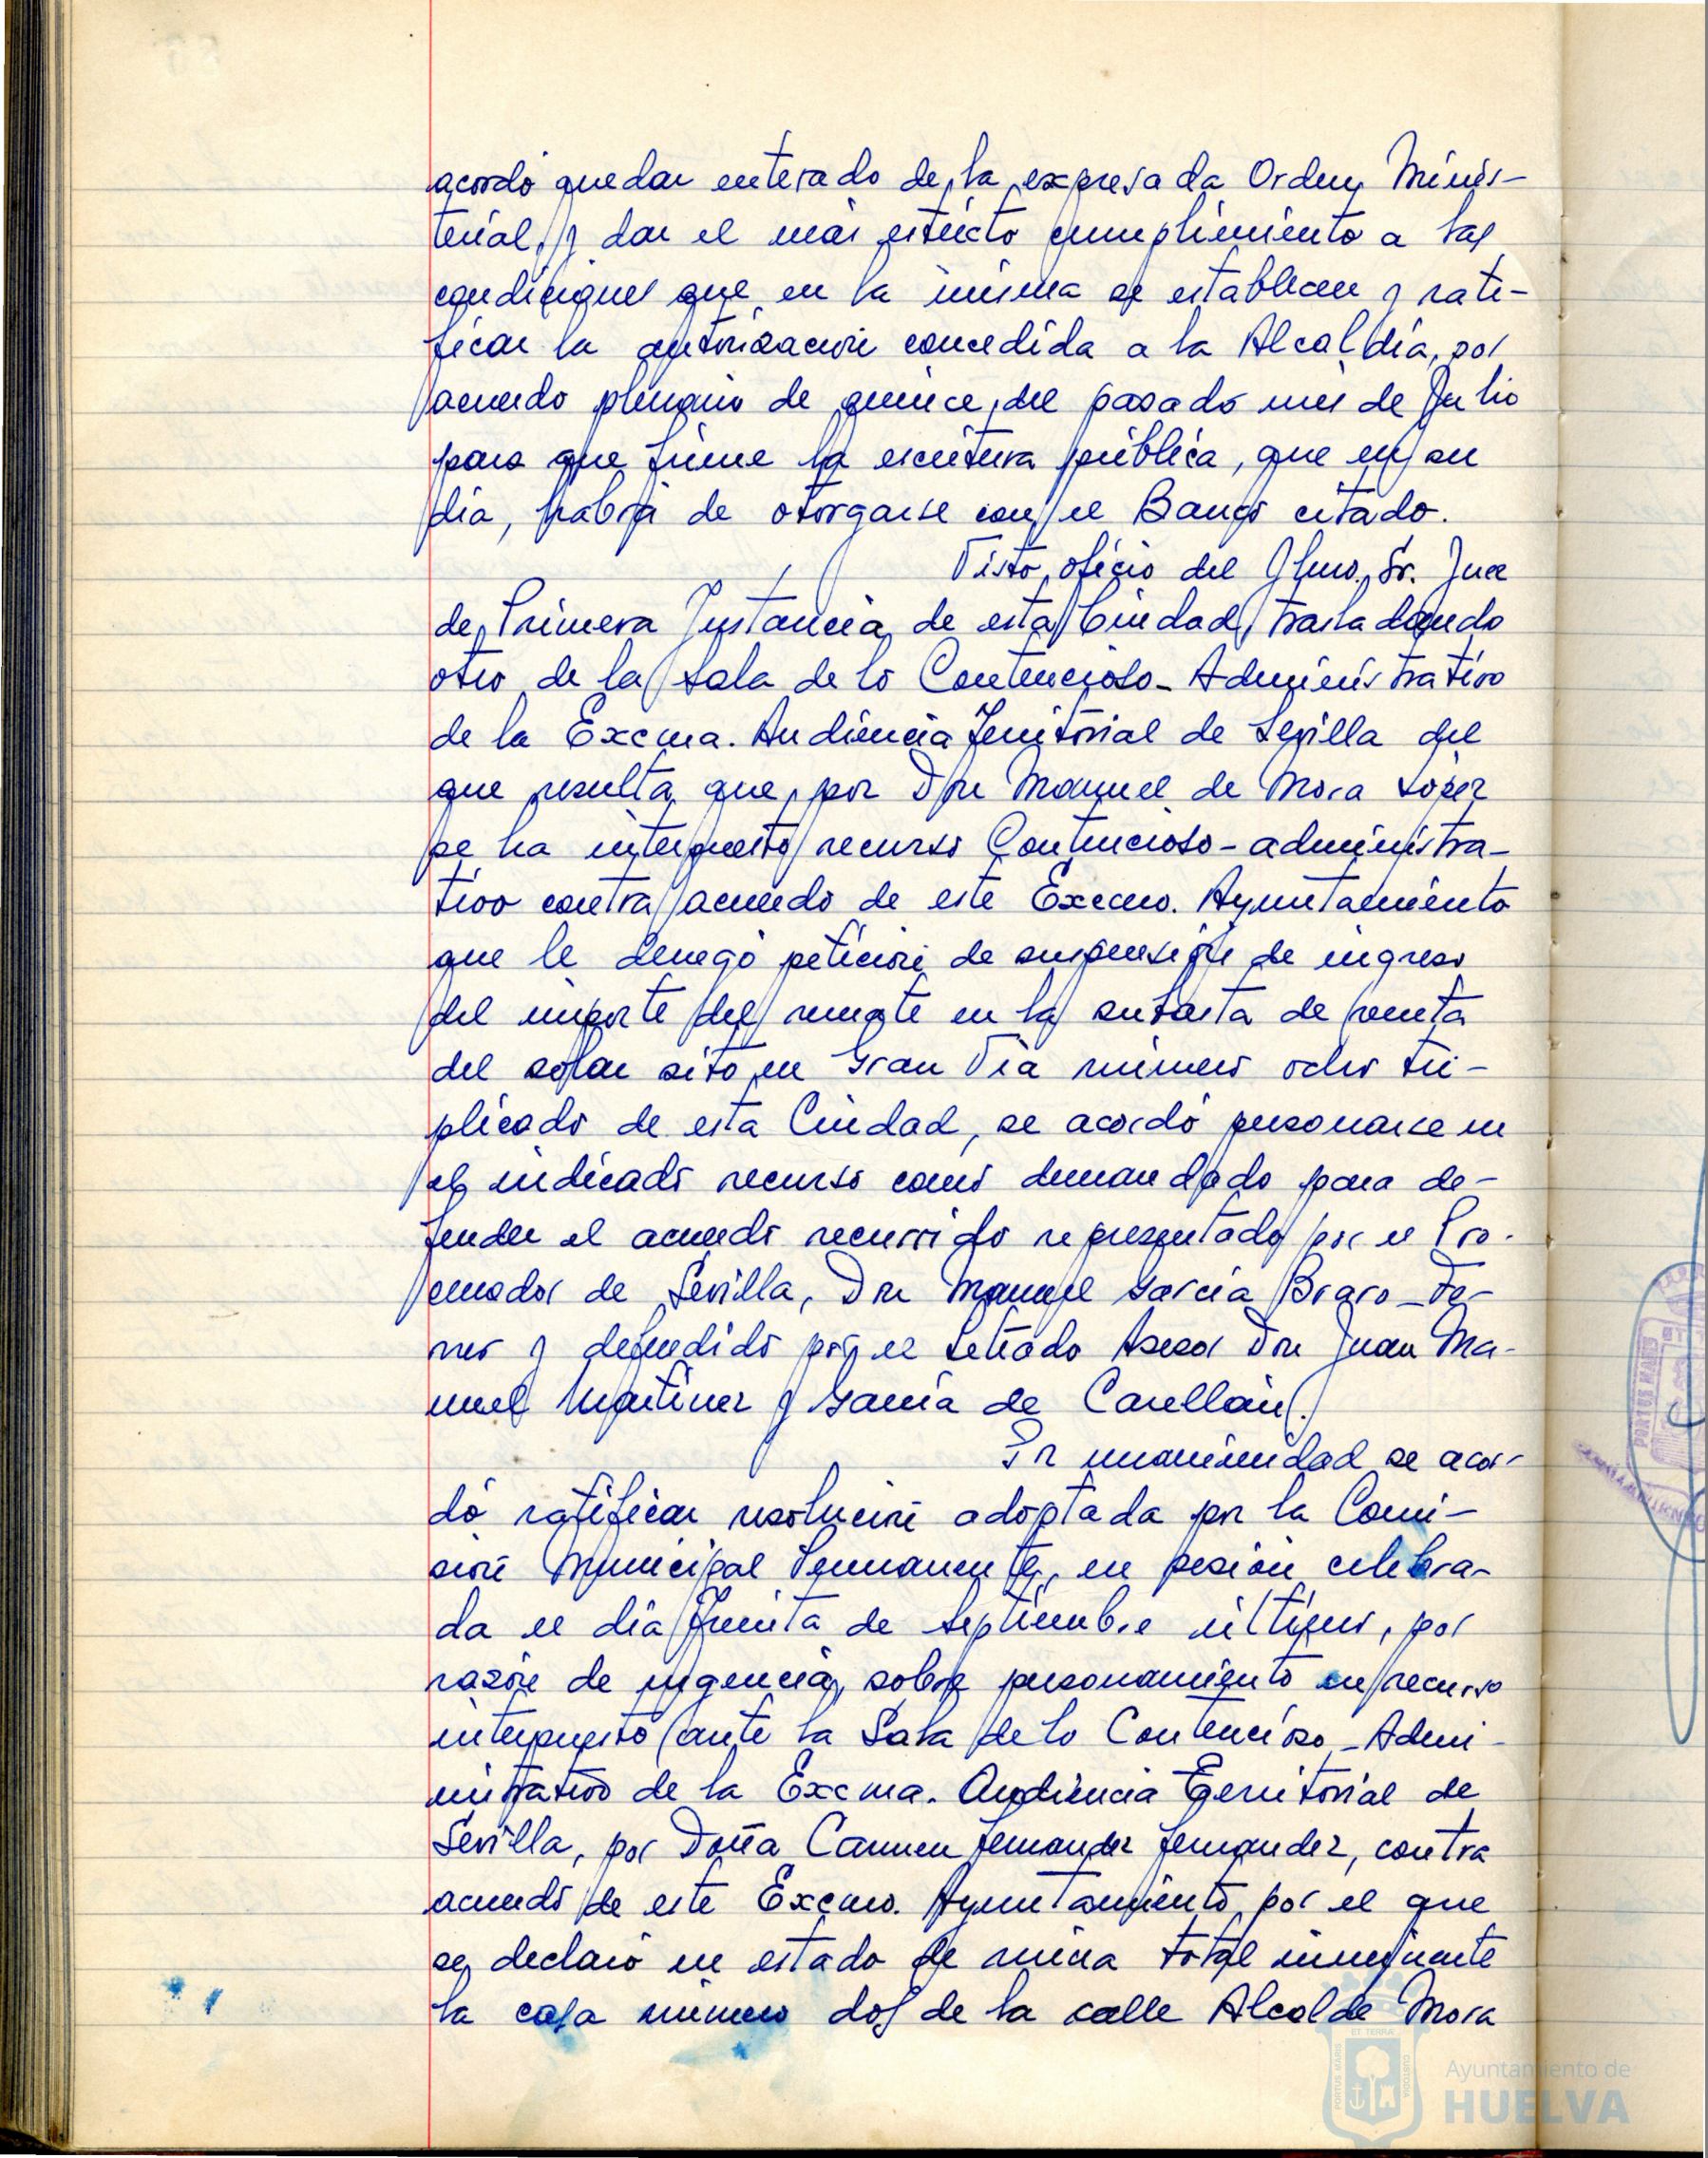 acordó quedar enterado de la expresada Orden Minis-
terial, y dar el más estricto cumplimiento a las
condiciones que en la misma se establecen y rati-
ficar la autorización concedida a la Alcaldía, por
acuerdo plenario de quince del pasado mes de Julio
para que firme la escritura pública, que en su
día, habrá de otorgarse con el Banco citado.
Visto oficio del Ilmo. Sr. Juez
de Primera Instancia de esta Ciudad, trasladando
otro de la Sala de lo Contencioso-Administrativo
de la Excma. Audiencia Territorial de Sevilla del
que resulta que por Don Manuel de Mora López
se ha interpuesto recurso Contencioso-administra-
tivo contra acuerdo de este Excmo. Ayuntamiento
que le denegó petición de suspensión de ingreso
del importe del remate en la subasta de venta
del solar sito en Gran Vía número ocho tri-
plicado de esta Ciudad, se acordó personarse en
el indicado recurso como demandado para de-
fender el acuerdo recurrido representado por el Pro-
curador de Sevilla, Don Manuel García Bravo-Fe-
rrer y defendido por el Letrado Asesor Don Juan Ma-
nuel Martínez y García de Casellán.
Por unanimidad se acor-
dó ratificar resolución adoptada por la Comi-
sión Municipal Permanente, en sesión celebra-
da el día treinta de septiembre último, por
razón de urgencia, sobre personamiento en recurso
interpuesto ante la Sala de lo Contencioso-Admi-
nistrativo de la Excma. Audiencia Territorial de
Sevilla, por Doña Carmen Fernández Fernández, contra
acuerdo de este Excmo. Ayuntamiento por el que
se declaró en estado de ruina total inminente
la casa número dos de la calle Alcalde Mora
PORTUS MARIS
Ayuntamiento de
HUELVA